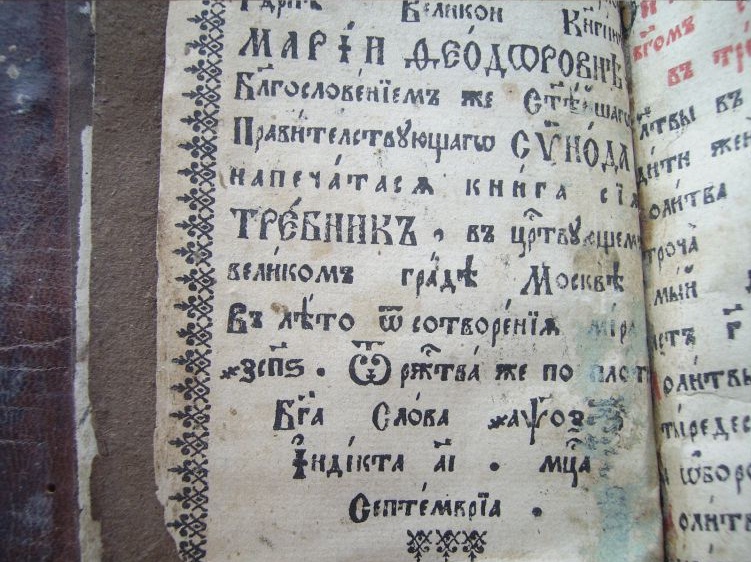 Великой
МАРІ́И ѲЕО́ДѠРОВНѢ
Бл҃гослове́нїемъ же Ст҃ѣ́йшагѡ
Прави́телствꙋющагѡ СѴНО́ДА
напеча́тасѧ кни́га сїѧ
ТРЕ́БНИКЪ , въ цр҇твꙋющемъ
вели́комъ гра́дѣ Москвѣ̀
Въ лѣ́то ѿ сотворе́нїѧ мі́ра
҂зсп҃ѕ . Ѿ рж҇тва́ же по плоти
Бг҃а Сло́ва ҂аѱоз
І҆нді́кта а҃і . мц҇а
Септе́мврїа .
въ
лтвы въ
дити жен
олитва
троча
мый
олитвы
тыредес
ѿборо
олитв